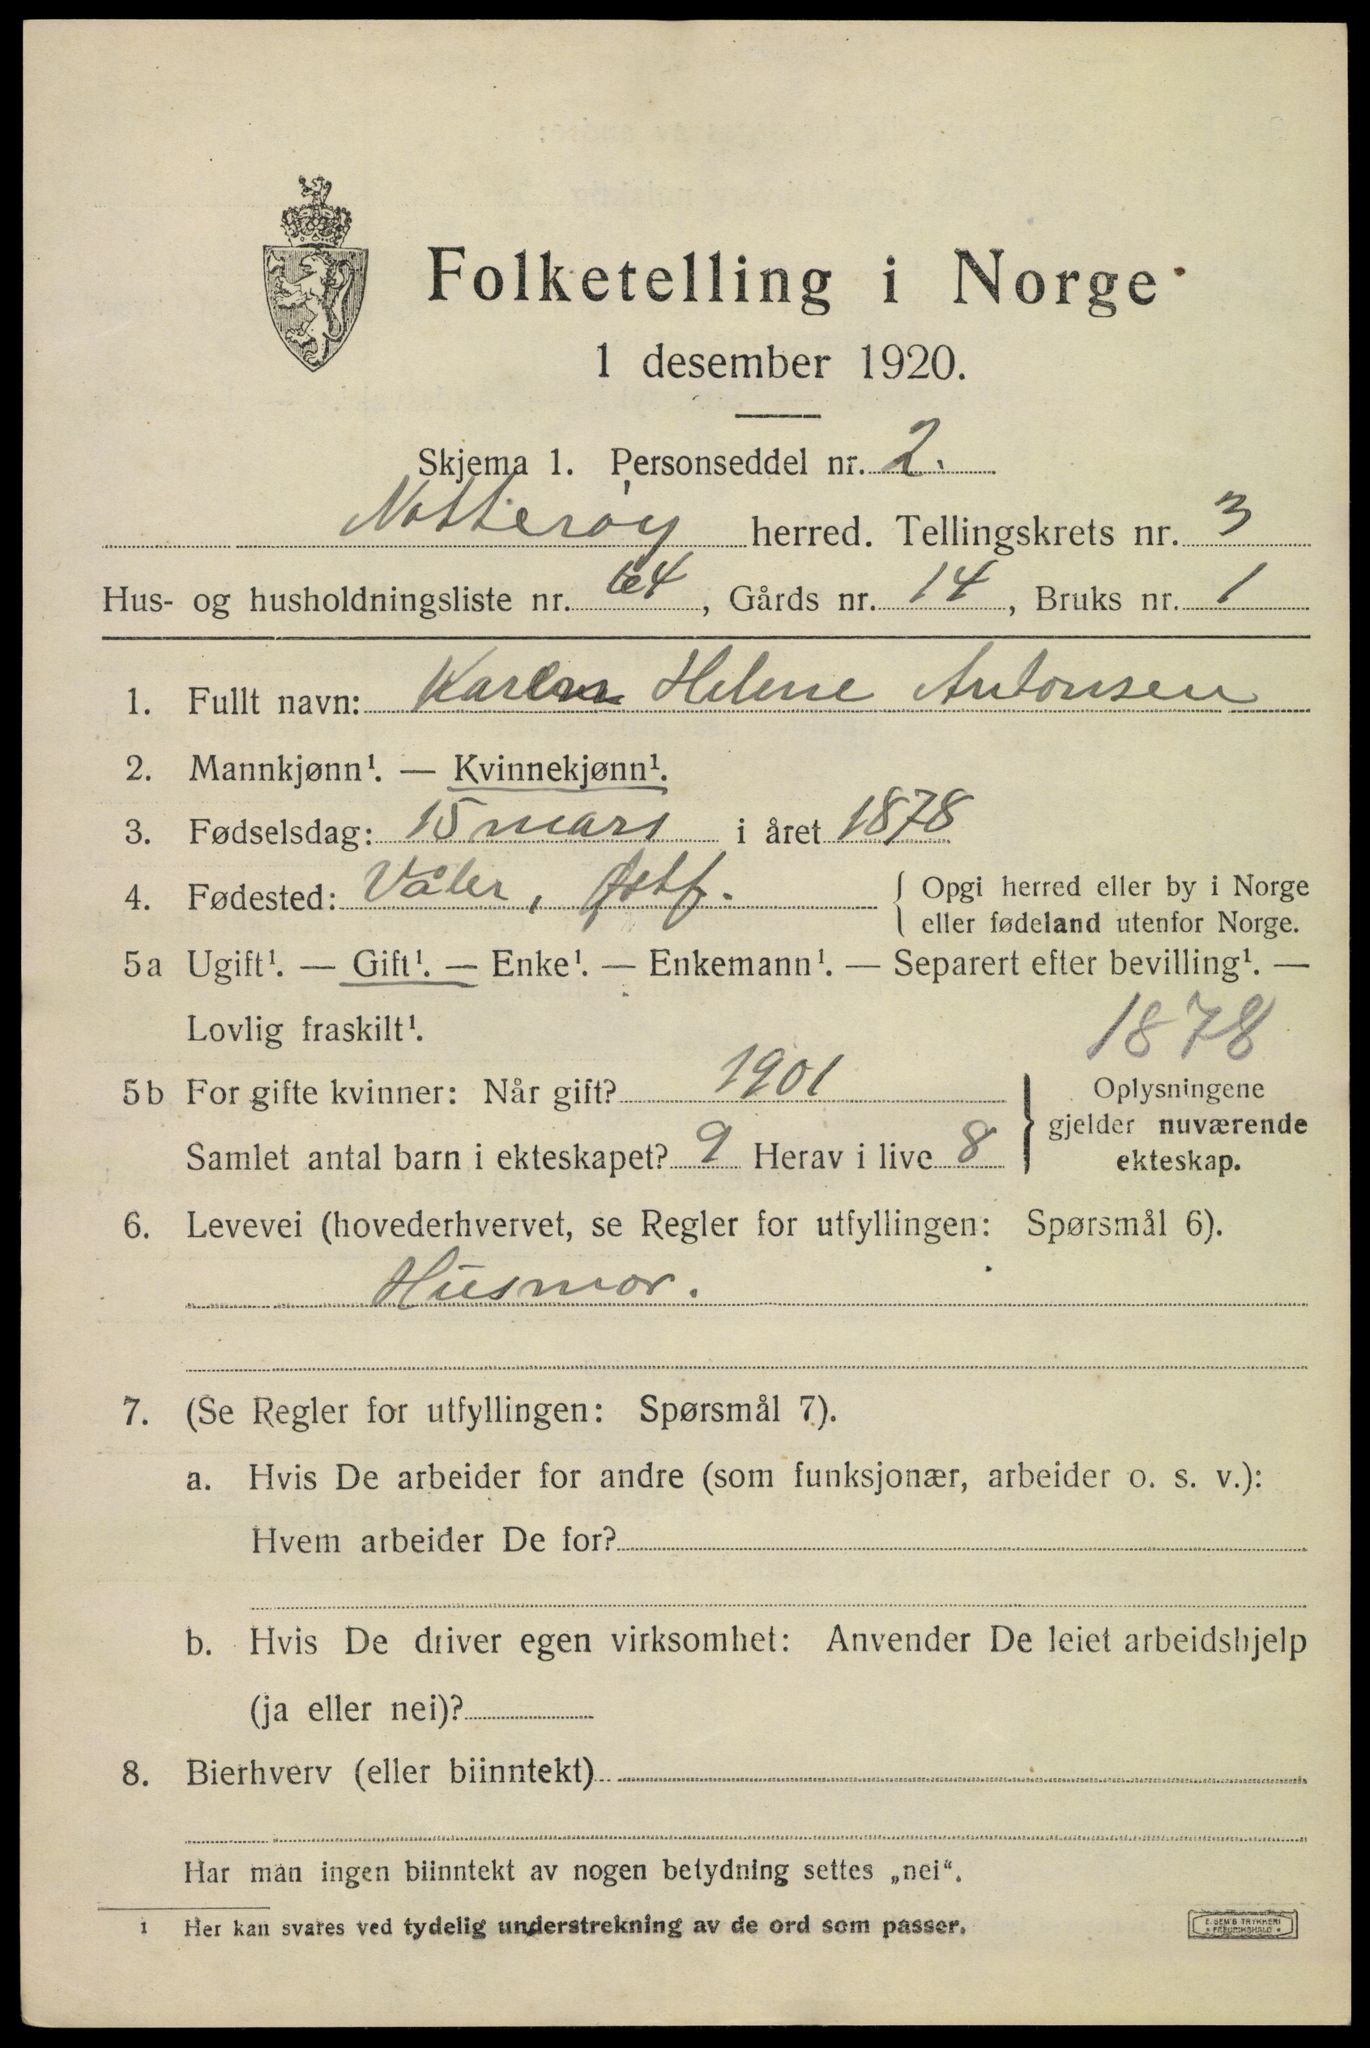 Folketelling i Norge
1 desember 1920.
Skjema 1. Personseddel nr. 2.
Nøtterøy herred. Tellingskrets nr. 3
Hus- og husholdningsliste nr. 64, Gårds nr. 14, Bruks nr. 1
1. Fullt navn: Karen Helene Antonsen
2. Mannkjønn¹. — Kvinnekjønn¹.
3. Fødselsdag: 15 mars i året 1878
4. Fødested: Våler, Østf. { Opgi herred eller by i Norge
eller fødeland utenfor Norge.
5a Ugift¹. — Gift¹. — Enke¹. — Enkemann¹. — Separert efter bevilling¹. —
Lovlig fraskilt¹.
1878
5b For gifte kvinner: Når gift? 1901
Samlet antal barn i ekteskapet? 9 Herav i live 8
} Oplysningene
gjelder nuværende
ekteskap.
6. Levevei (hovederhvervet, se Regler for utfyllingen: Spørsmål 6).
Husmor.
7. (Se Regler for utfyllingen: Spørsmål 7).
a. Hvis De arbeider for andre (som funksjonær, arbeider o. s. v.):
Hvem arbeider De for?
b. Hvis De driver egen virksomhet: Anvender De leiet arbeidshjelp
(ja eller nei)?
8. Bierhverv (eller biinntekt)
Har man ingen biinntekt av nogen betydning settes „nei“.
1 Her kan svares ved tydelig understrekning av de ord som passer.
E. SEM'S TRYKKERI
* FREDRIKSHALD *